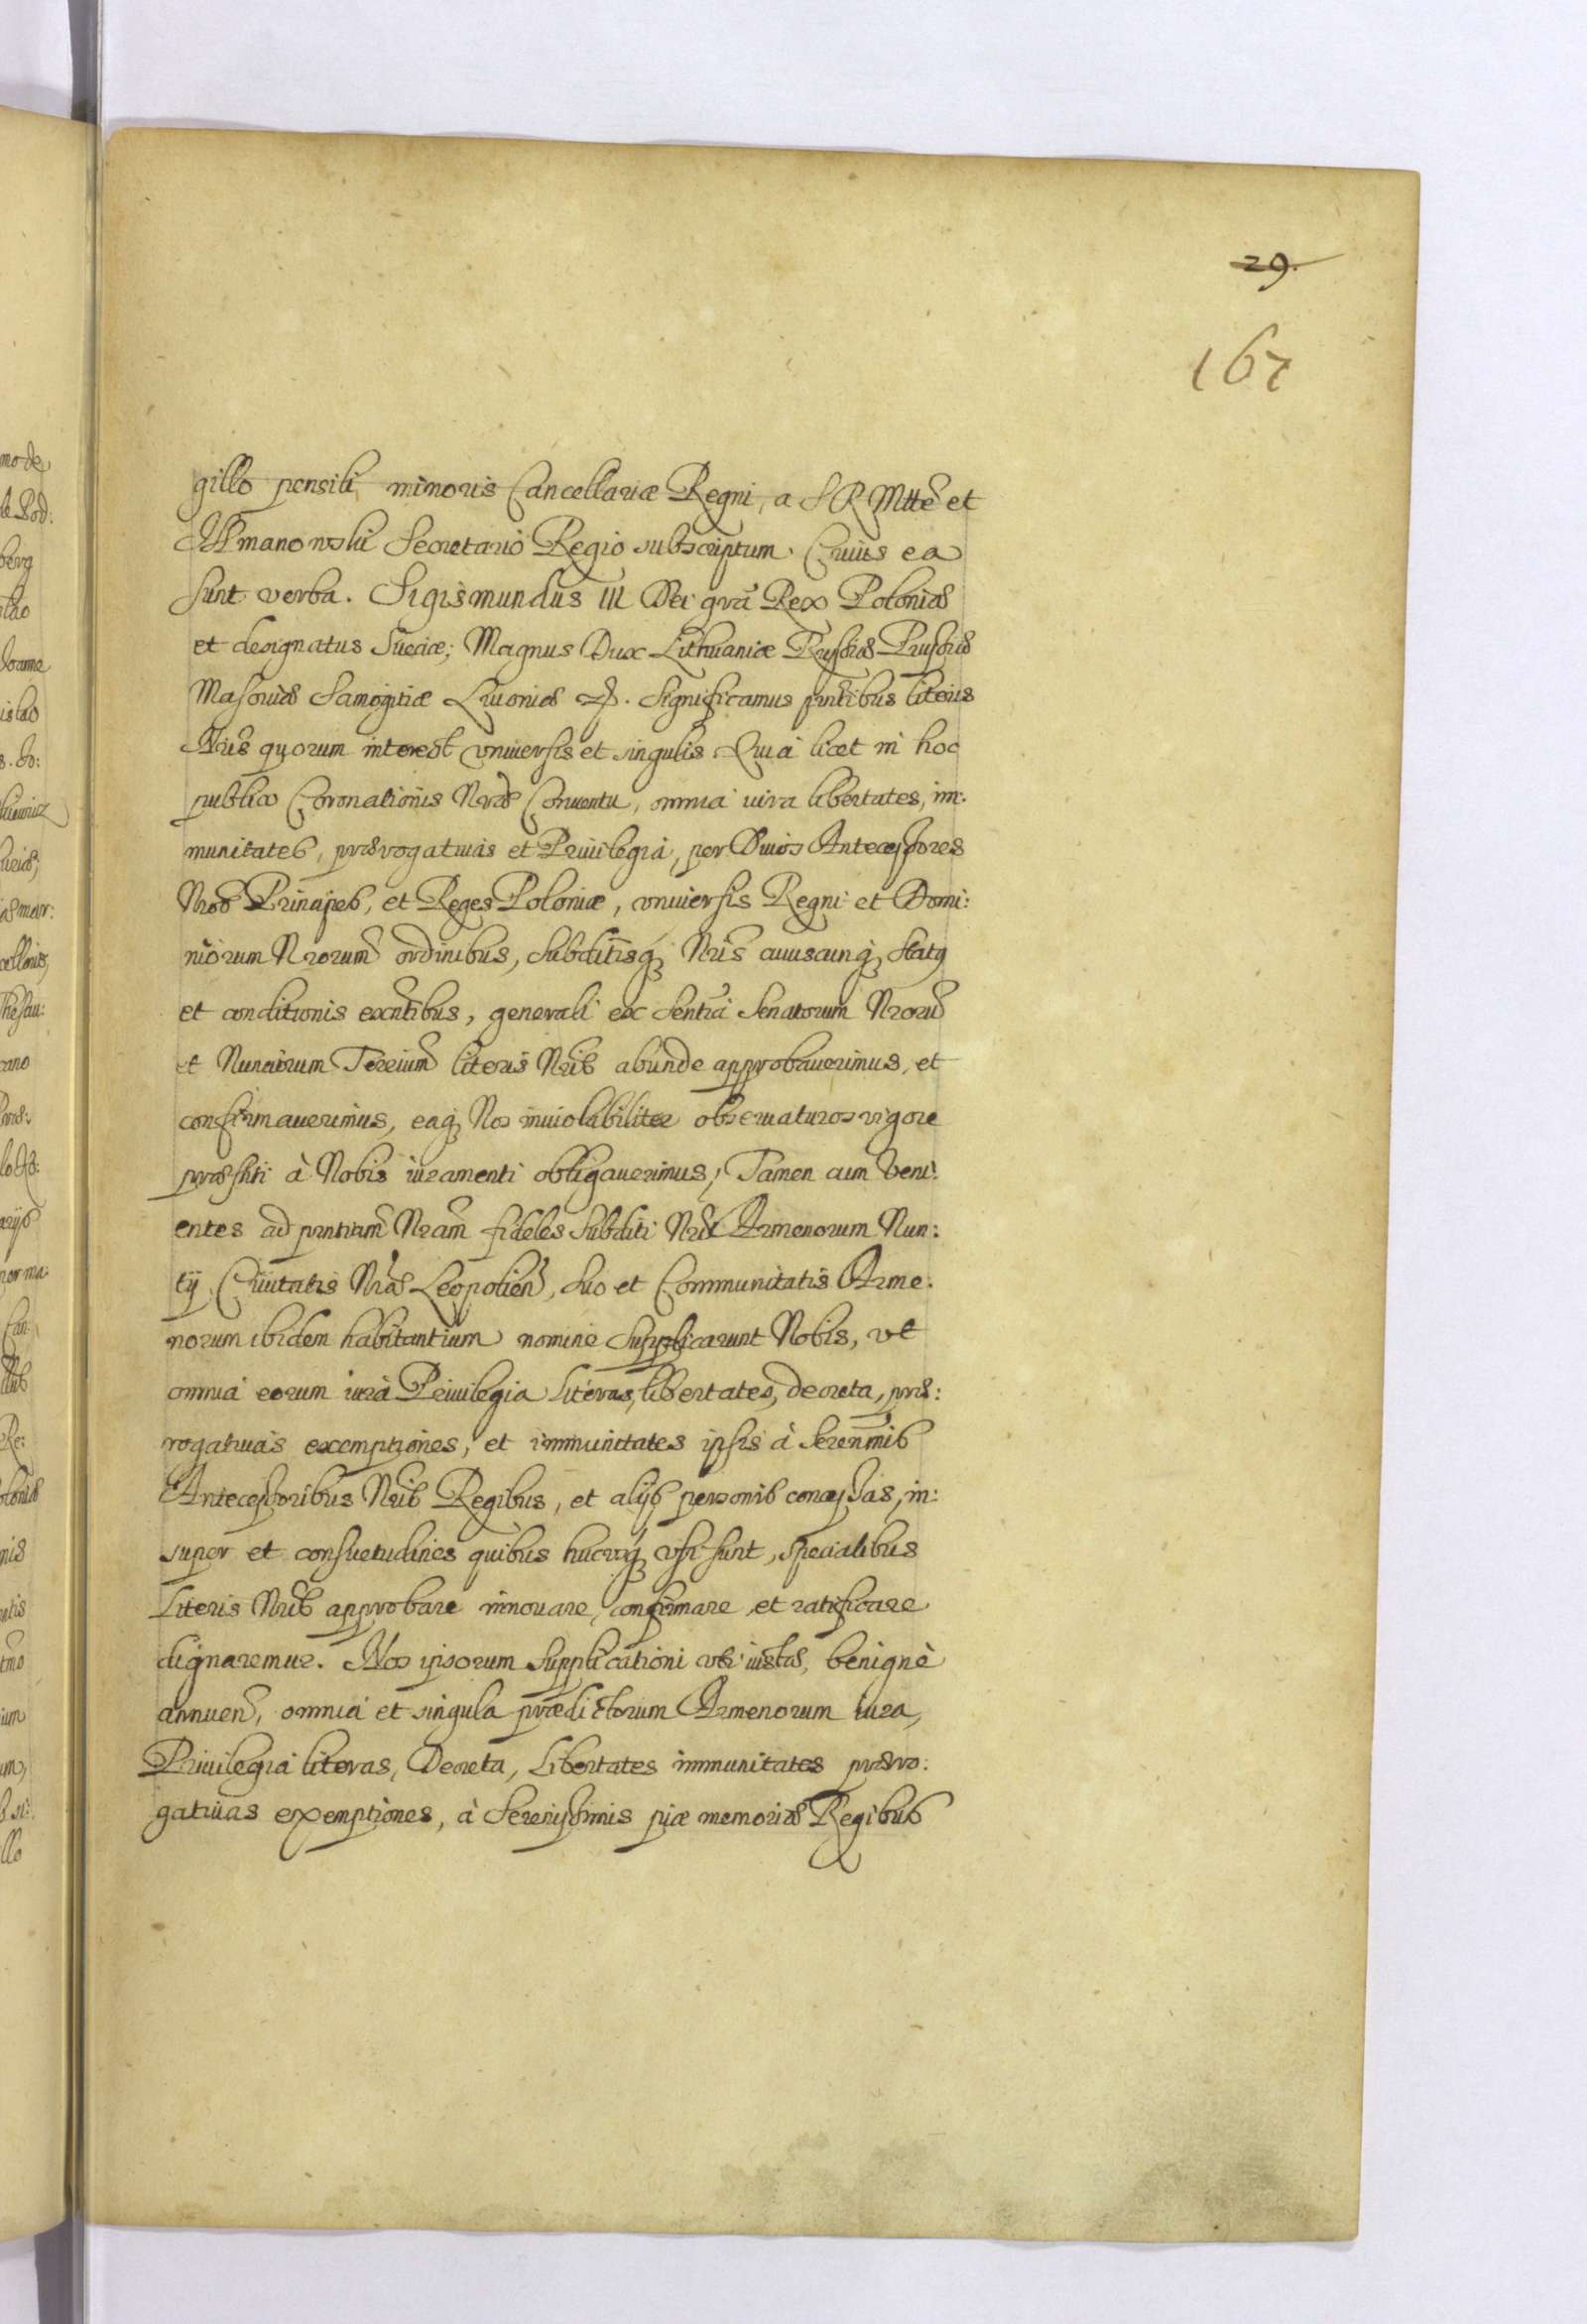 29.
167
gillo pensili minoris Cancellariæ Regni, a S R Mtte et
Secretario Regio subscriptum. Cuius ea
sunt verba. Sigismundus III Dei grã Rex Poloniæ
et designatus Sueciæ; Magnus Dux Lithuaniæ Russiæ Prussiæ
Masoviæ Samogitiæ Livoniæ &. Significamus pntibus literis
Nris quorum interest vniuersis et singulis. Quia licet in hoc
publico Coronationis Nræ Conuentu, omnia iura libertates, im:
munitates, prærogatiuas et Priuilegia, per Diuos Antecessores
Nros Principes, et Reges Poloniæ, vniuersis Regni et Domi:
niorum Nrorum ordinibus, subditisq Nris cuiuscunq status
et conditionis exntibus, generali ex sentia Senatorum Nroru
et Nunciorum Terrium literis Nris abunde approbauerimus, et
confirmauerimus, eaq Nos inuiolabiliter obseruaturos vigore
præstiti à Nobis iuramenti obligauerimus; Tamen cum Veni:
entes ad pntiam Nram fideles subditi Nri Armenorum Nun:
tij Ciuitatis Nræ Leopolien, suo et Communitatis Arme:
norum ibidem habitantium nomine supplicarunt Nobis, vt
omnia eorum iura Priuilegia literas, libertates, decreta, præ:
rogatiuas exemptiones, et immunitates ipsis à Serenmis
Antecessoribus Nris Regibus, et alijs personis concessas, in:
super et consuetudines quibus hucusq vsi sunt, specialibus
Literis Nris approbare innouare, confirmare et ratificare
dignaremur. Nos ipsorum supplicationi vti iustæ, benignè
annuen, omnia et singula prædictorum Armenorum iura,
Priuilegia literas, Decreta, Libertates immunitates præro:
gatiuas exemptiones, à Serenissimis piæ memoriæ Regibus